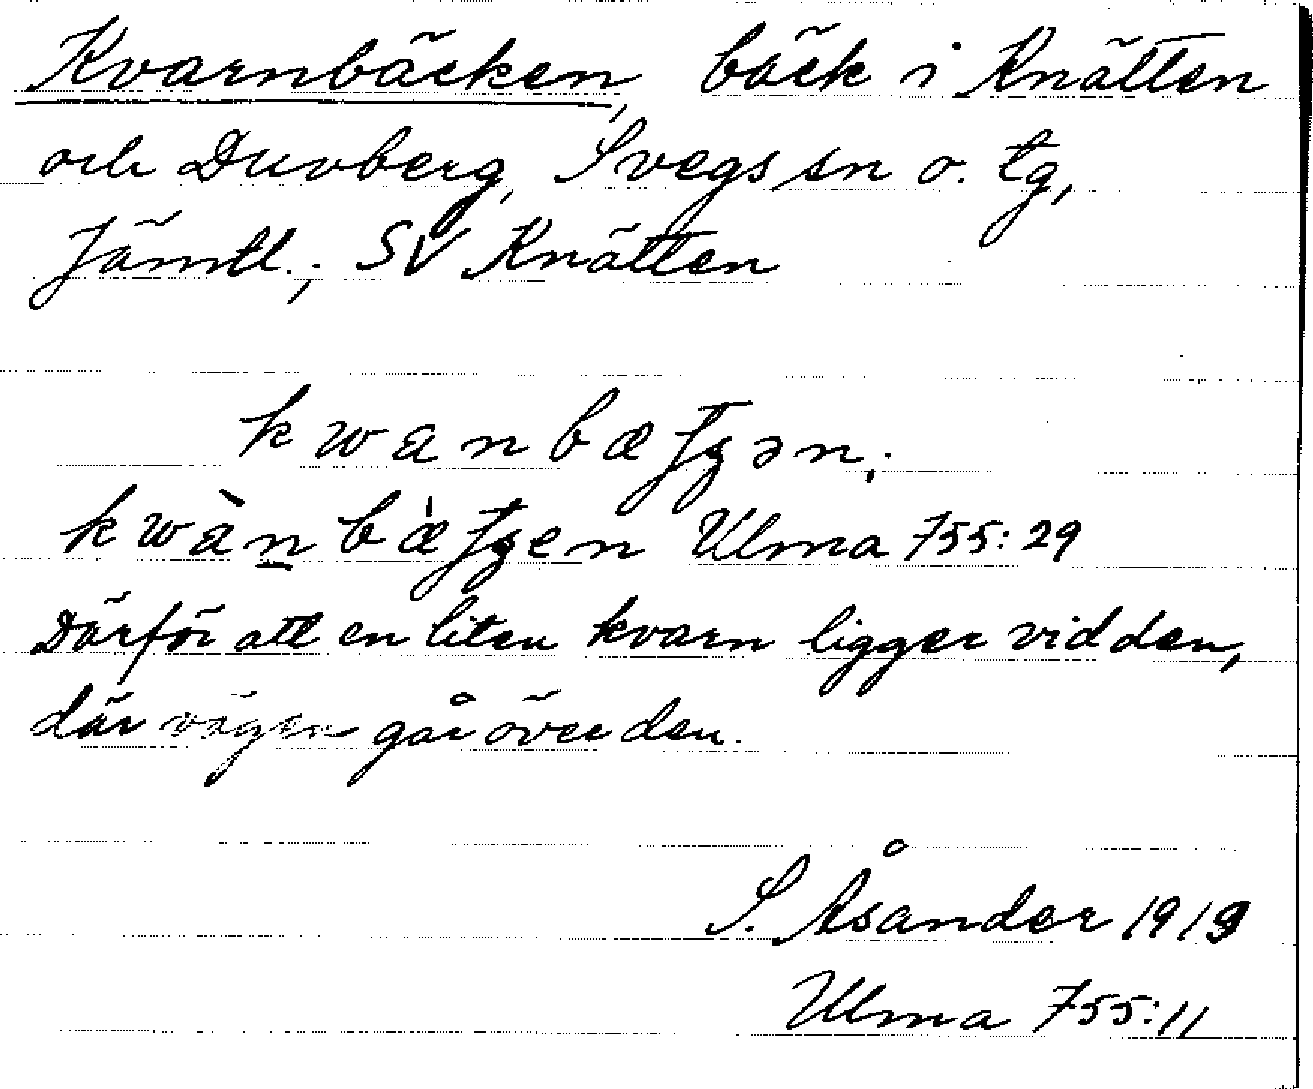 Kvarnbäcken, bäck i Knätten
och Duvberg, Svegs sn o. tg,
Jämtl.; SV Knätten
Ulma 755:29
Därför att en liten kvarn ligger vid den,
där vägen går över den.
S. Åsander 1919
Ulma 755:11